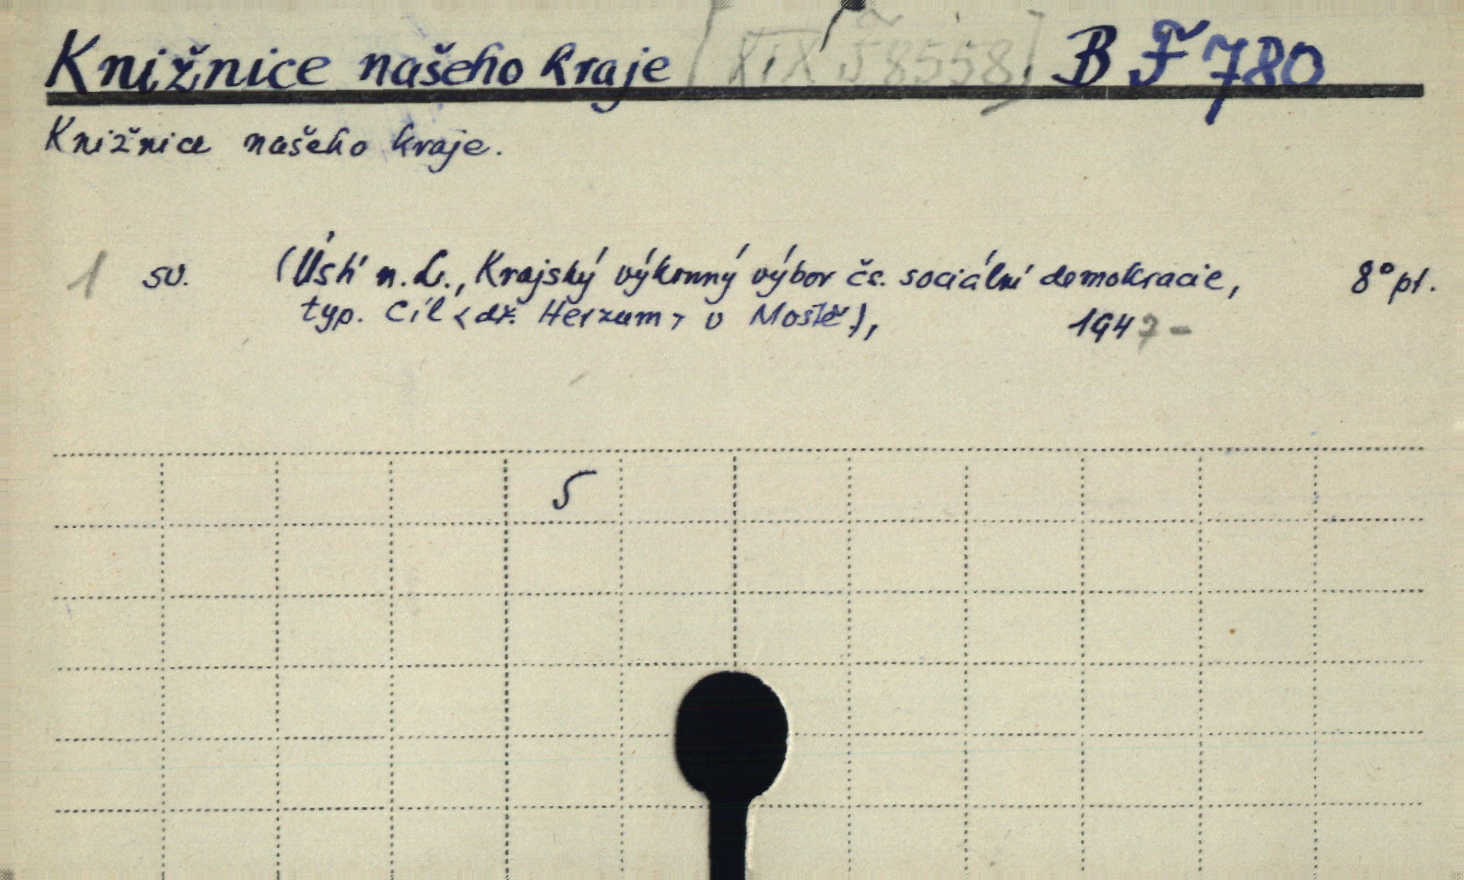 Knižnice našeho kraje [XIX Š 8558] B F 780
Knižnice našeho kraje.
1 sv. (Ústí n.L., Krajský výkonný výbor čs. sociální demokracie, 8° pl.
typ. Cíl <dř. Herzum> v Mostě), 1947-
5